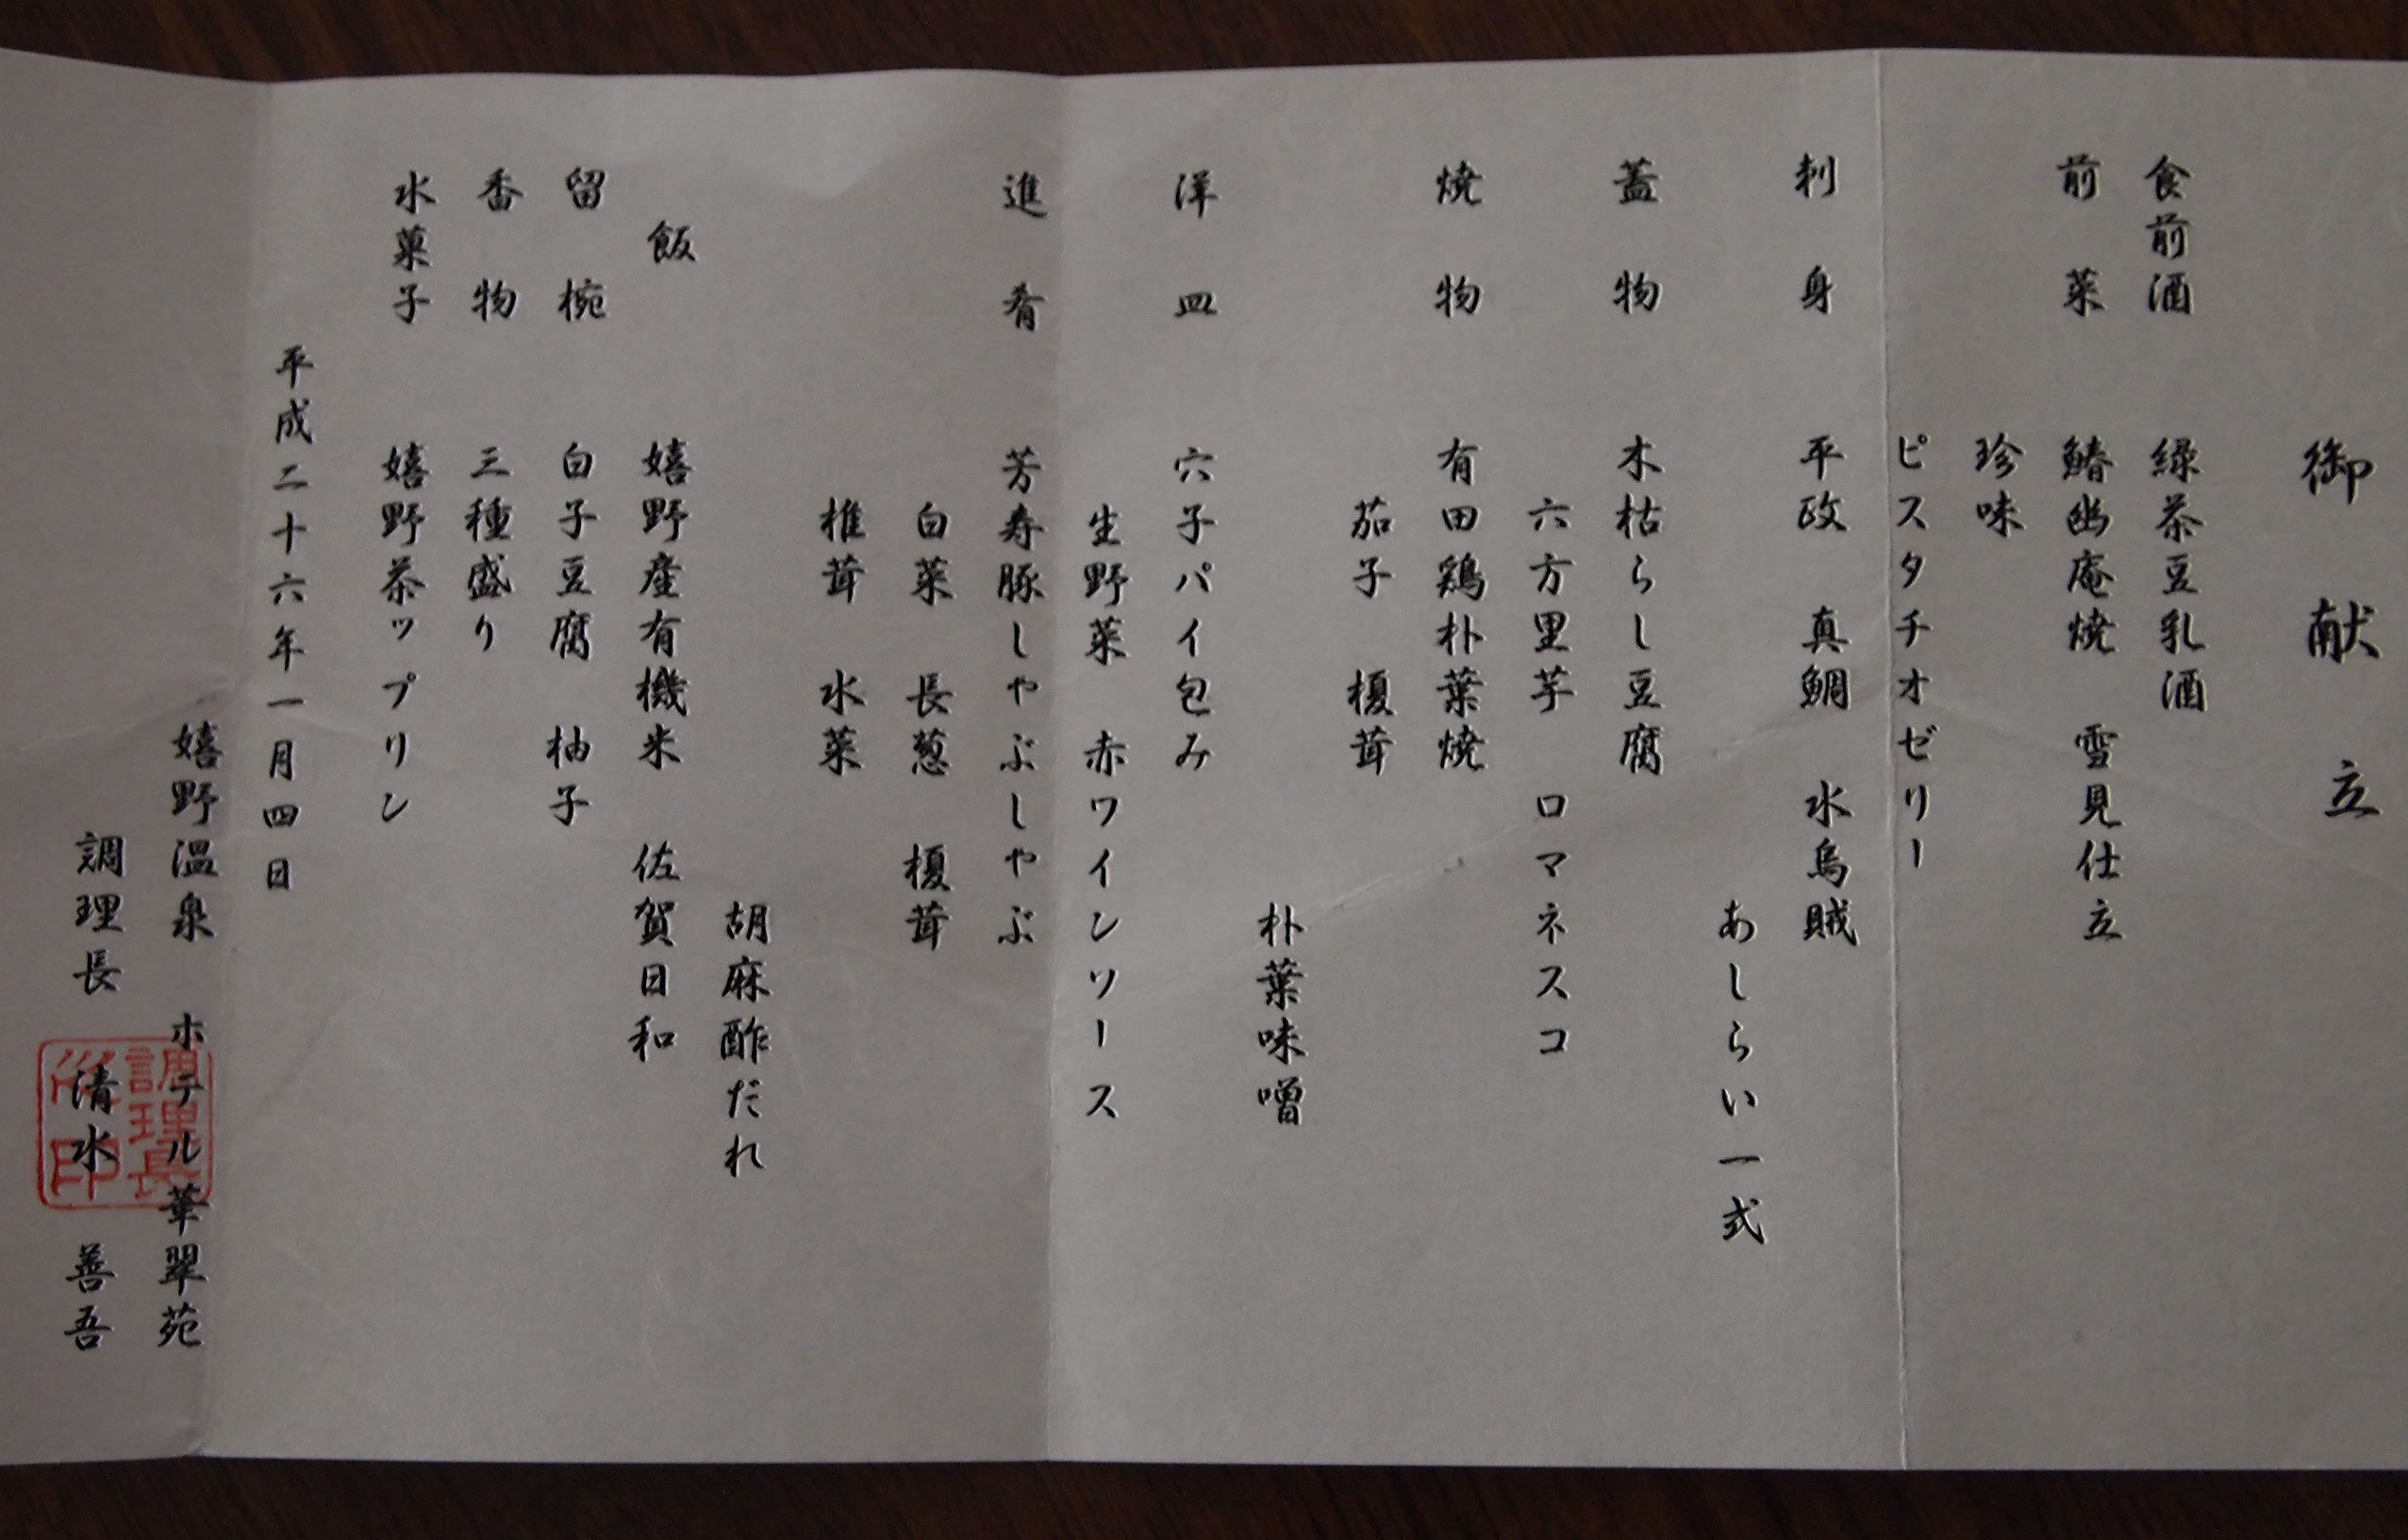 御献立
食前酒　緑茶豆乳酒
前菜　鰆幽庵焼　雪見仕立
珍味
ピスタチオゼリー
刺身　平政　真鯛　水烏賊
あしらい一式
蓋物　木枯らし豆腐
六方里芋　ロマネスコ
焼物　有田鶏朴葉焼
茄子　榎茸
朴葉味噌
洋皿　穴子パイ包み
生野菜　赤ワインソース
進肴　芳寿豚しゃぶしゃぶ
白菜　長葱　榎茸
椎茸　水菜
胡麻酢だれ
飯　嬉野産有機米　佐賀日和
留椀　白子豆腐　柚子
香物　三種盛り
水菓子　嬉野茶ップリン
平成二十六年一月四日
嬉野温泉　ホテル華翠苑
調理長　清水　善吾
調理長
印